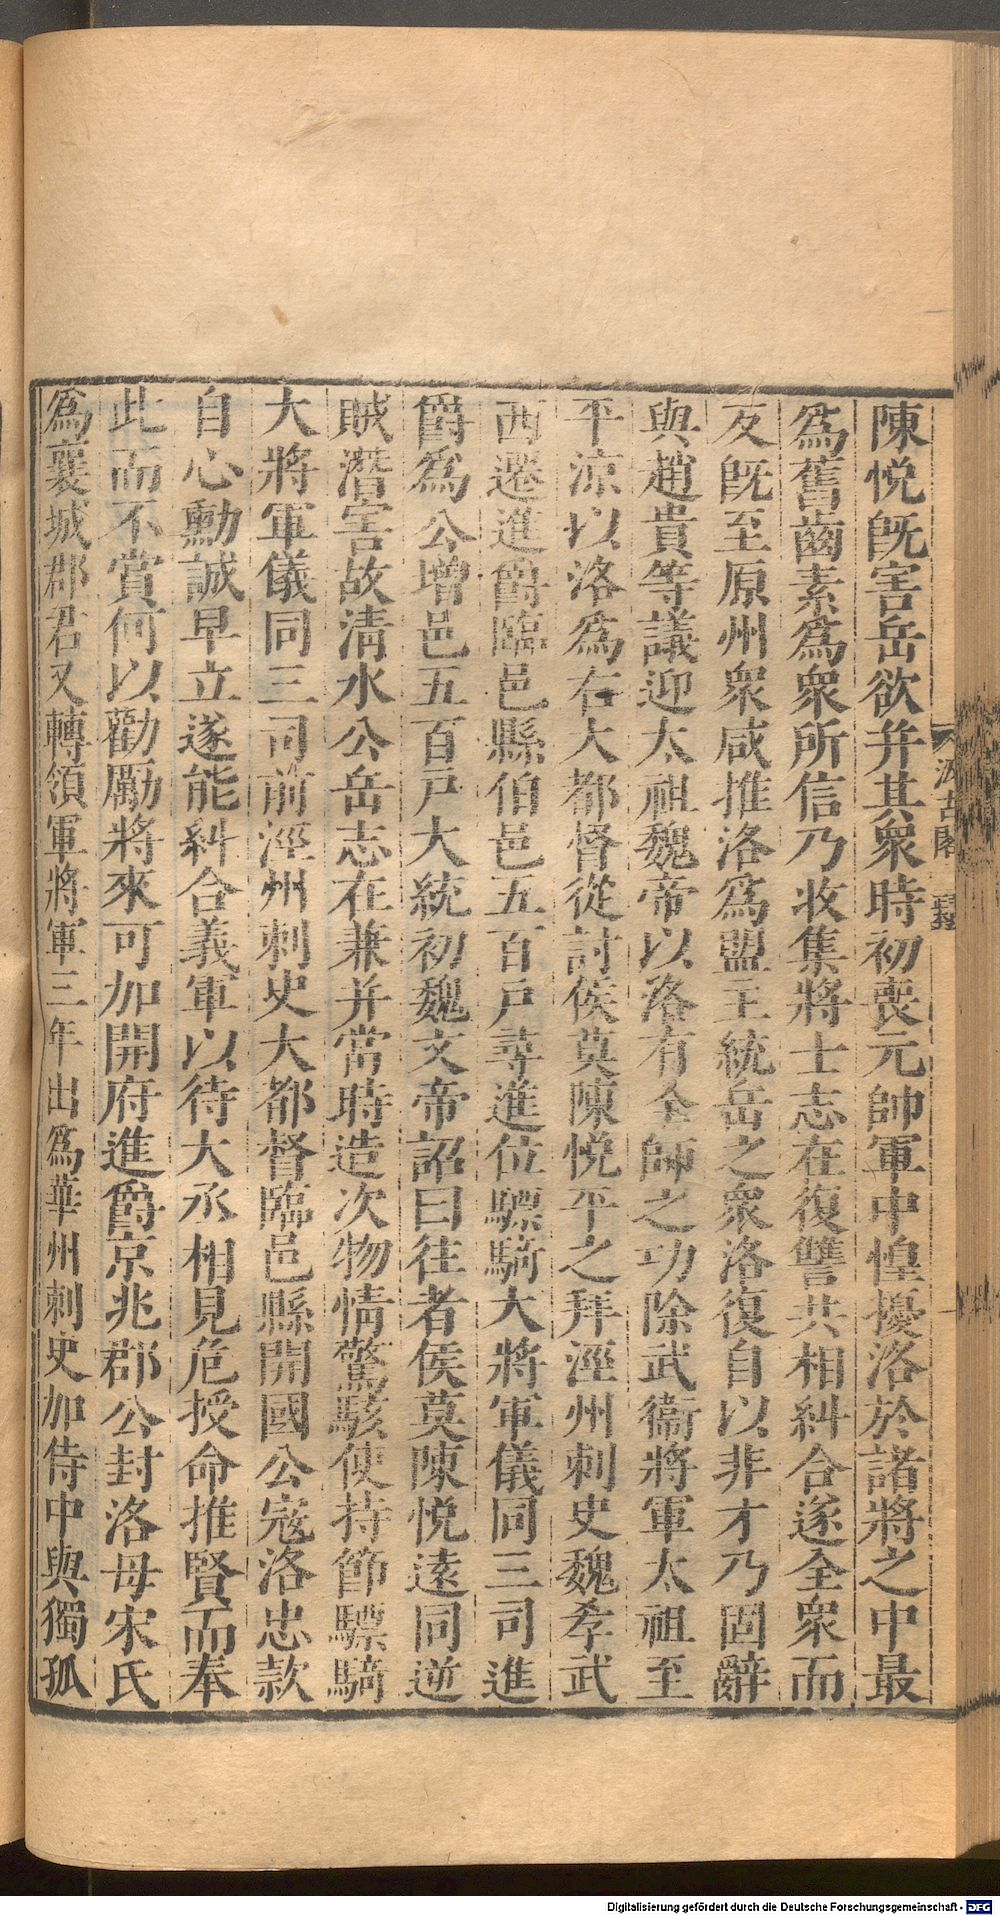 陳悅既害岳欲幷其衆時初喪元帥軍中惶擾洛於諸將之中最
爲舊齒素爲衆所信乃收集將士志在復讐共相糾合遂全衆而
反既至原州衆咸推洛爲盟主統岳之衆洛復自以非才乃固辭
與趙貴等議迎太祖魏帝以洛有全師之功除武衞將軍太祖至
平涼以洛爲右大都督從討侯莫陳悅平之拜涇州刺史魏孝武
西遷進爵臨邑縣伯邑五百戸尋進位驃騎大將軍儀同三司進
爵爲公增邑五百戸大統初魏文帝詔曰往者侯莫陳悅遠同逆
賊潛害故淸水公岳志在兼并當時造次物情驚駭使持節驃騎
大將軍儀同三司前涇州刺史大都督臨邑縣開國公寇洛忠款
自心勳誠早立遂能糾合義軍以待大丞相見危授命推賢而奉
此而不賞何以勸勵將來可加開府進爵京兆郡公封洛母宋氏
爲襄城郡君又轉領軍將軍三年出爲華州刺史加侍中與獨孤
Digitalisierung gefördert durch die Deutsche Forschungsgemeinschaft - DFG